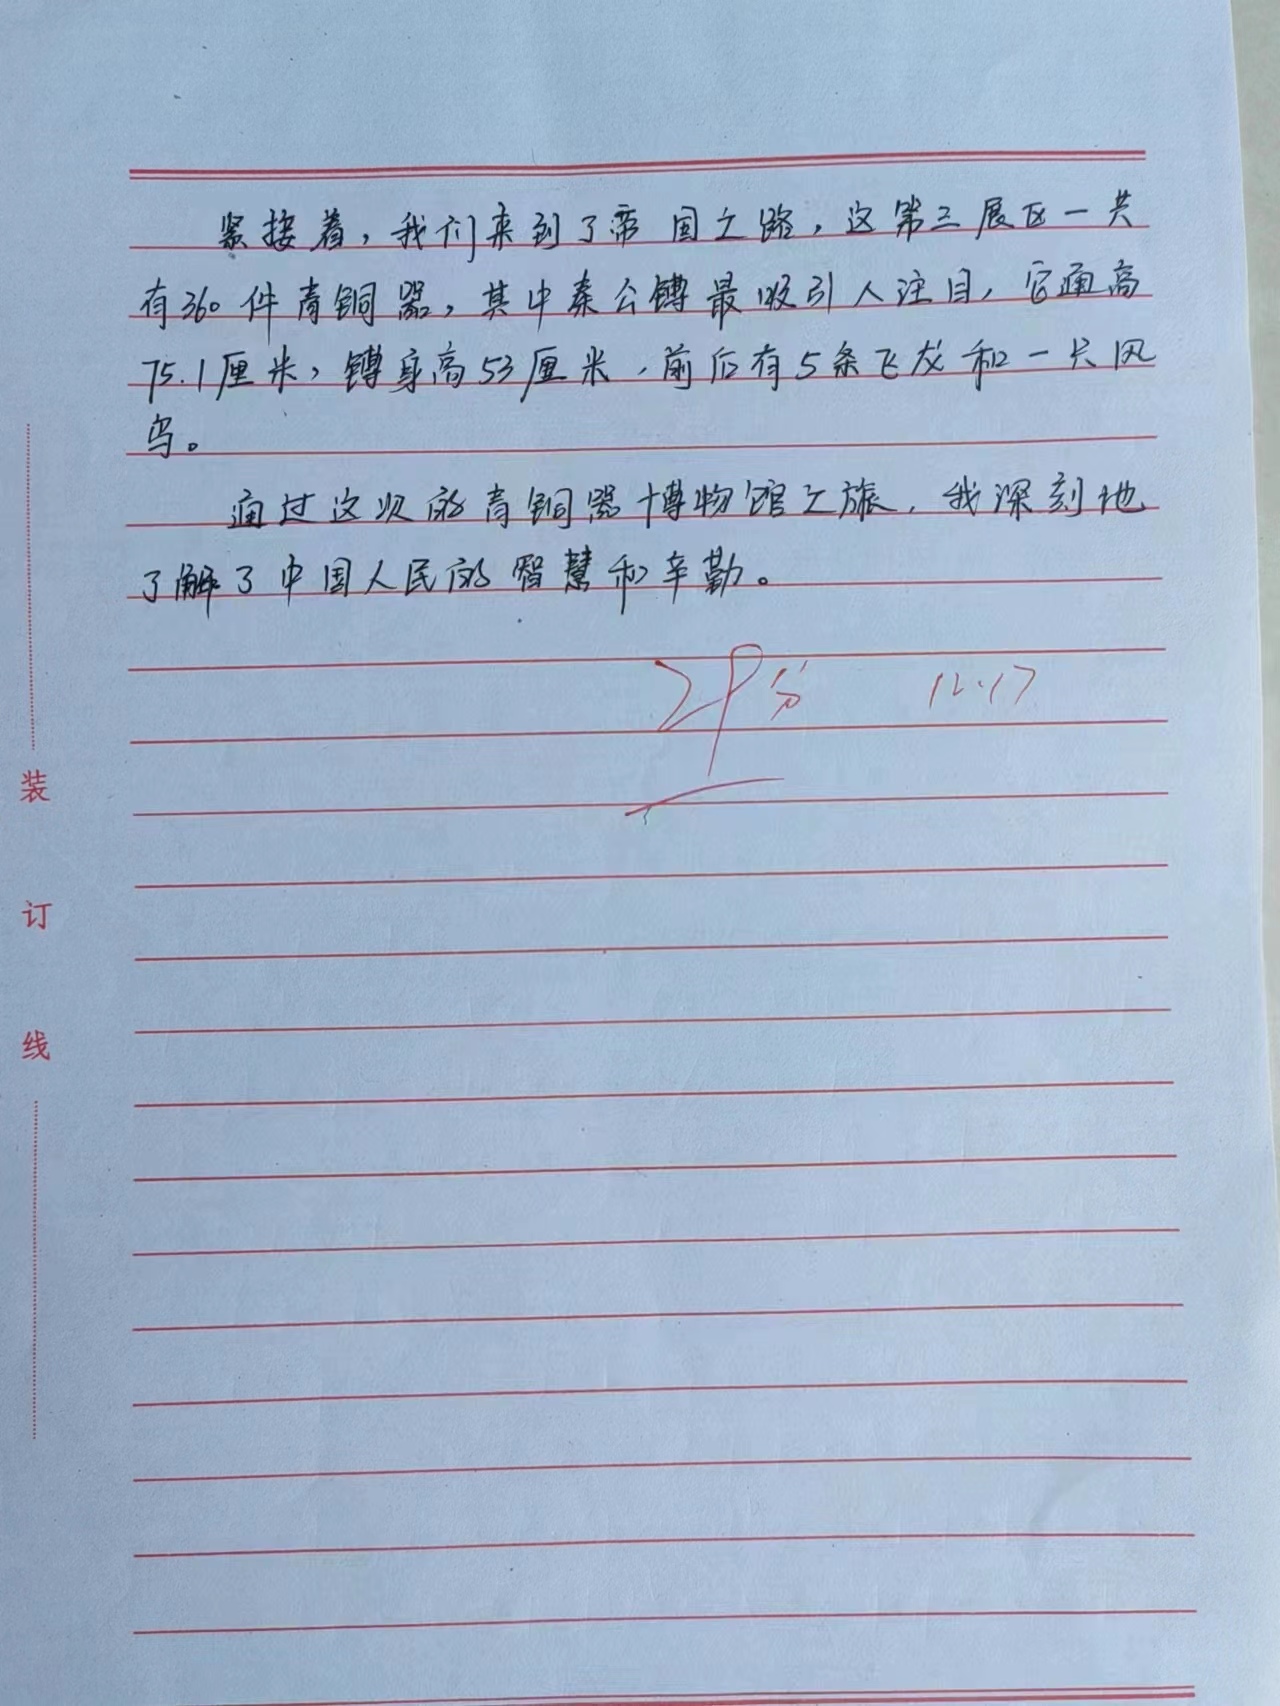 紧接着，我们来到了帝国之路，这第三展区一共
有360件青铜器，其中秦公镈最吸引人注目，它通高
75.1厘米，镈身高53厘米，前后有5条飞龙和一只凤
鸟。
通过这次的青铜器博物馆之旅，我深刻地
了解了中国人民的智慧和辛勤。
29分 12.17
装
订
线